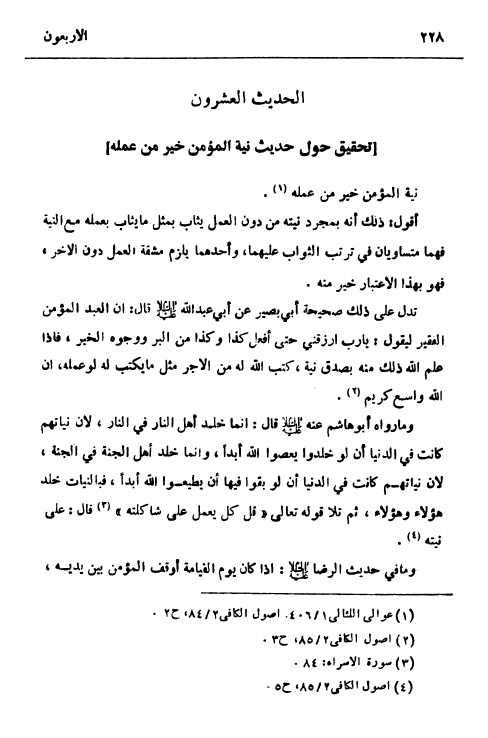 ٢٢٨ الاربعون
الحديث العشرون
[تحقيق حول حديث نية المؤمن خير من عمله]
نية المؤمن خير من عمله (١) .
أقول: ذلك أنه بمجرد نيته من دون العمل يثاب بمثل مايثاب بعمله مع النية
فهما متساويان في ترتب الثواب عليهما، وأحدهما يلزم مشقة العمل دون الاخر ،
فهو بهذا الاعتبار خير منه .
تدل على ذلك صحيحة أبي بصير عن أبي عبدالله عليه السلام قال: ان العبد المؤمن
الفقير ليقول : يارب ارزقني حتى أفعل كذا وكذا من البر ووجوه الخير ، فاذا
علم الله ذلك منه بصدق نية ، كتب الله له من الاجر مثل مايكتب له لوعمله، ان
الله واسع كريم (٢) .
ومارواه أبوهاشم عنه عليه السلام قال : انما خلد أهل النار في النار ، لان نياتهم
كانت في الدنيا أن لو خلدوا يعصوا الله أبداً ، وانما خلد أهل الجنة في الجنة ،
لان نياتهـم كانت في الدنيا أن لو بقوا فيها أن يطيعـوا الله أبداً ، فبالنيات خلد
هؤلاء وهؤلاء ، ثم تلا قوله تعالى « قل كل يعمل على شاكلته » (٣) قال : على
نيته (٤) .
ومافي حديث الرضا عليه السلام : اذا كان يوم القيامة أوقف المؤمن بين يديـه ،
(١) عوالى اللئالى ٤٠٦/١. اصول الكافى ٨٤/٢، ح٢ ٠
(٢) اصول الكافى ٨٥/٢، ح٣ ٠
(٣) سورة الاسراء: ٨٤ ٠
(٤) اصول الكافى ٨٥/٢، ح٥ ٠